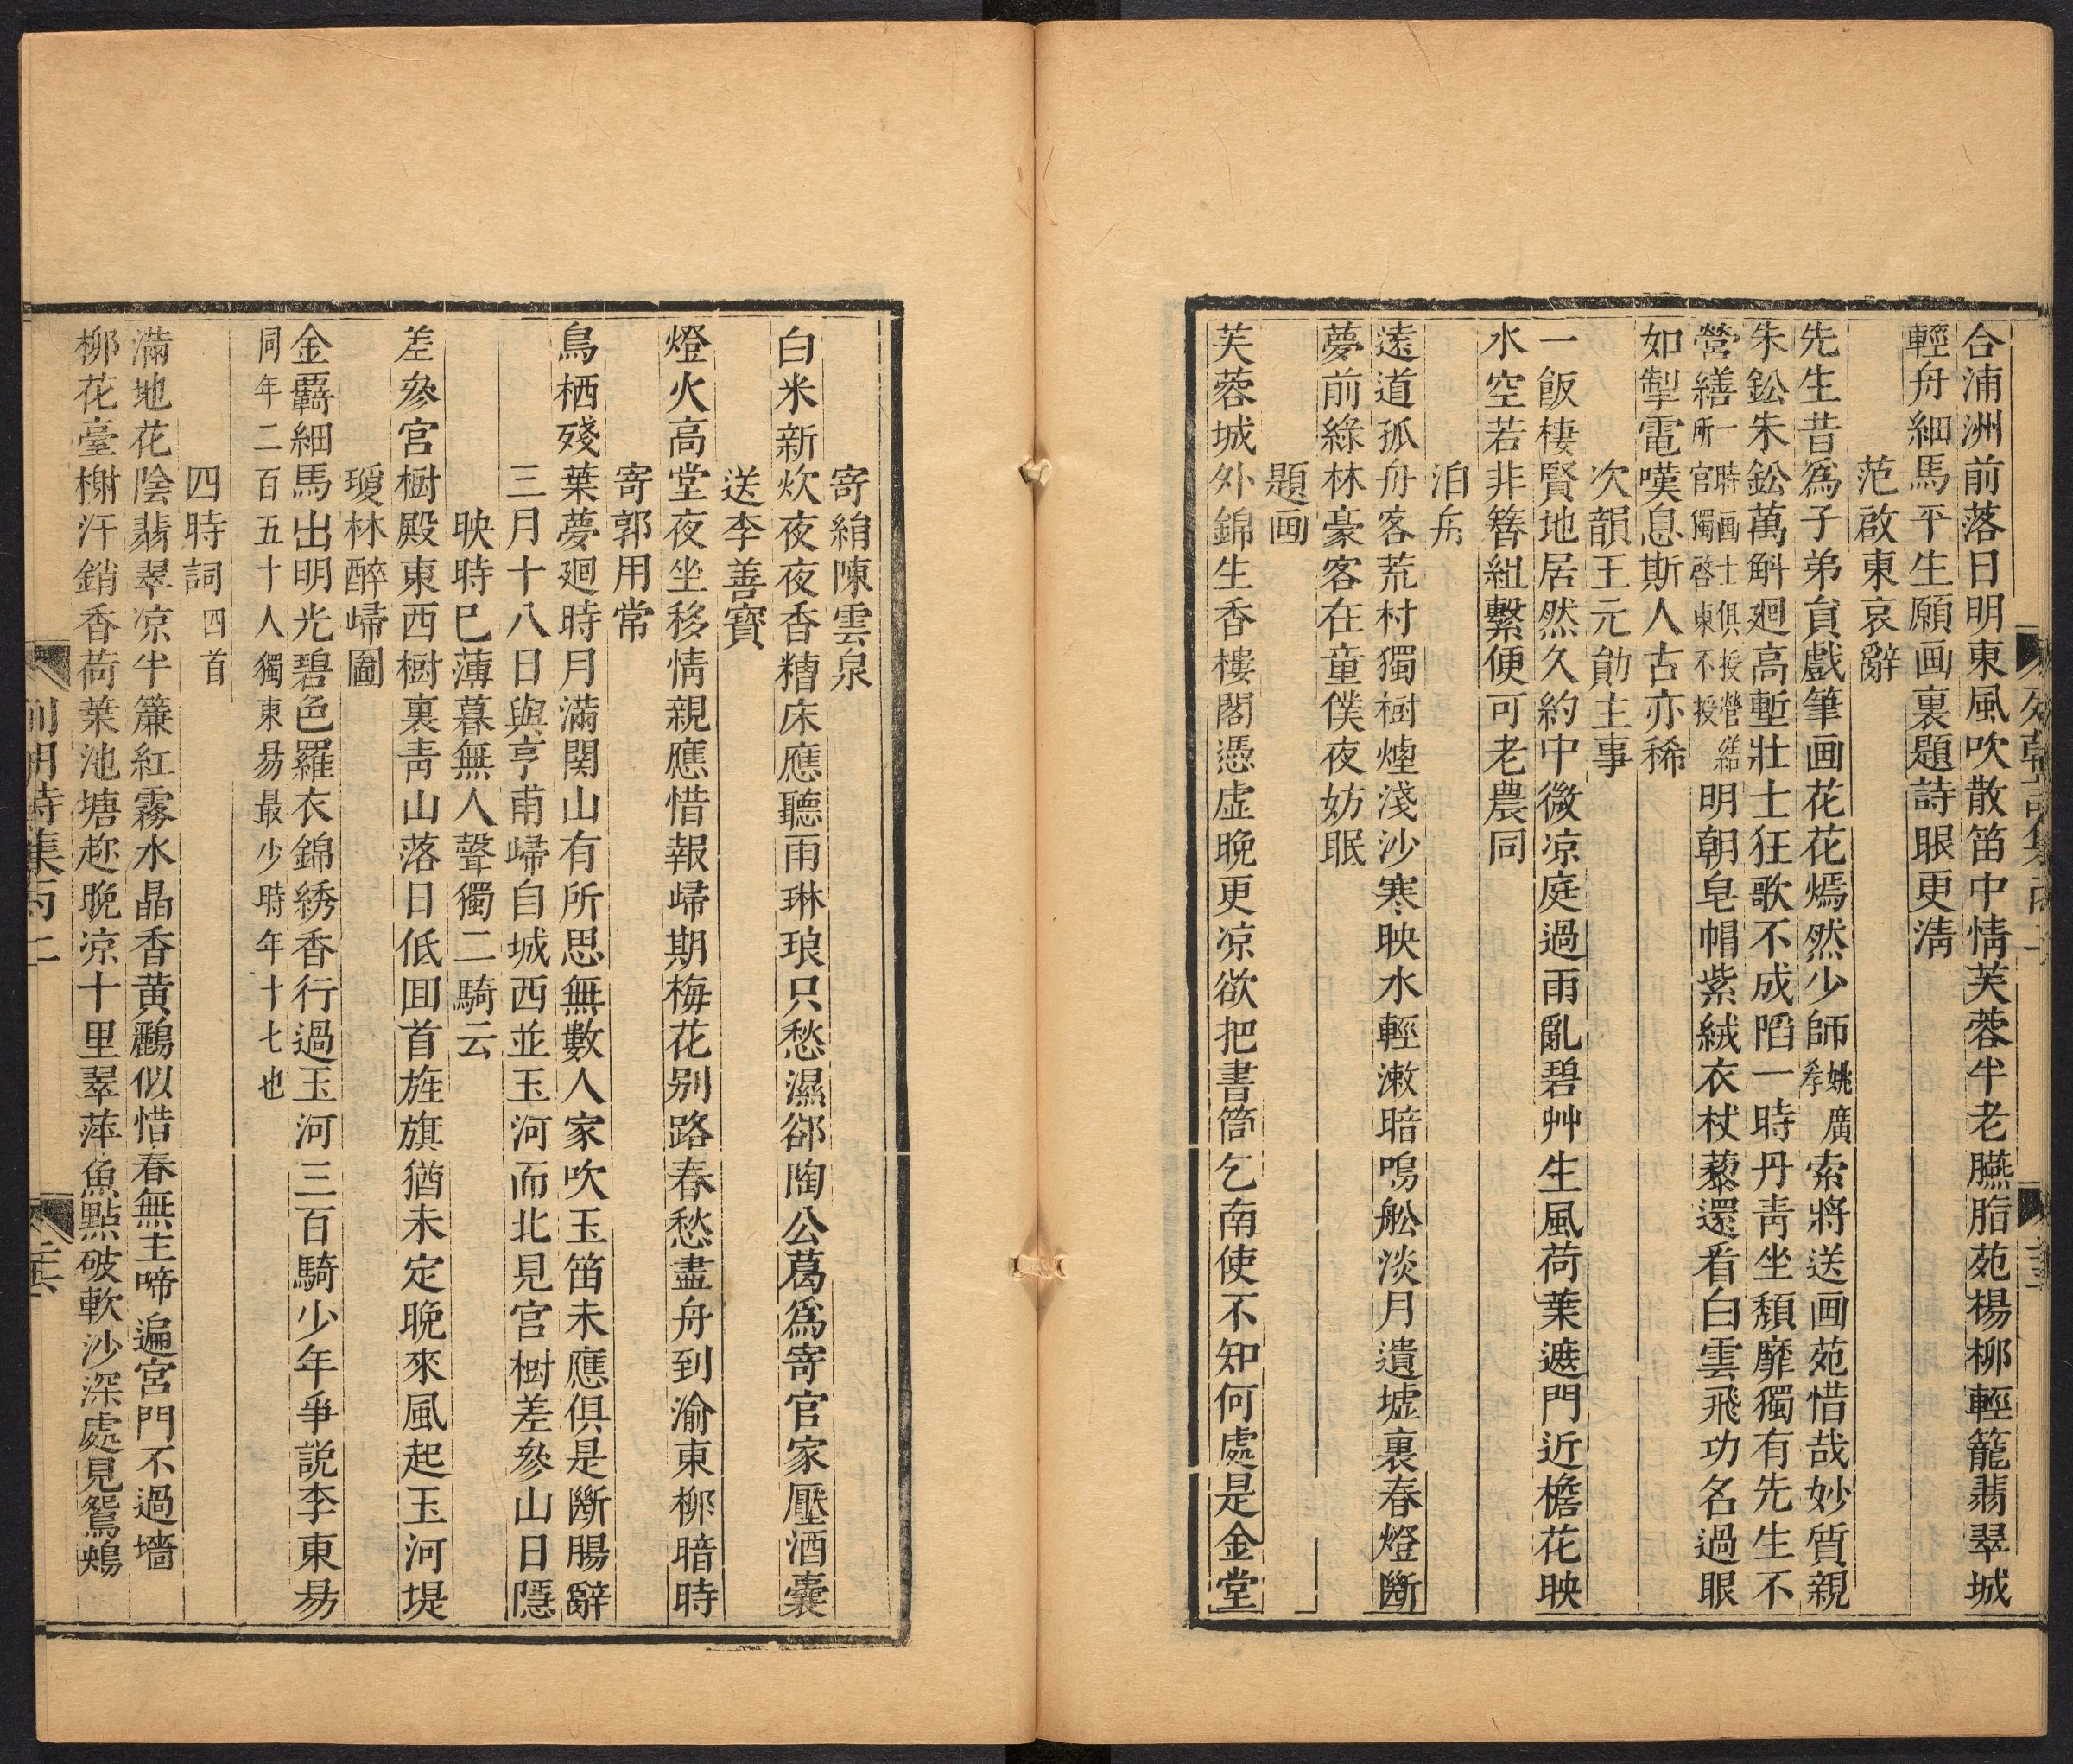 合浦洲前落日明東風吹散笛中情芙蓉半老臙脂苑楊柳輕籠翡翠城
輕舟細馬平生願画裏題詩眼更清
范啟東哀辭
先生昔爲子弟員戲筆画花花嫣然少師姚廣孝索將送画苑惜哉妙質親
朱鈆朱鈆萬斛廻高塹壯士狂歌不成䧟一時丹青坐頽靡獨有先生不
營繕一時画士俱授營繕所官獨啓東不授明朝皂帽紫絨衣杖藜還看白雲飛功名過眼
如掣電嘆息斯人古亦稀
次韻王元勛主事
一飯棲賢地居然久約中微凉庭過雨亂碧艸生風荷葉遮門近檐花映
水空若非簪組繫便可老農同
泊舟
遠道孤舟客荒村獨樹煙淺沙寒映水輕漱暗鳴舩淡月遺墟裏春燈斷
夢前綠林豪客在童僕夜妨眠
題画
芙蓉城外錦生香樓閣憑虛晚更凉欲把書筒乞南使不知何處是金堂
寄絹陳雲泉
白米新炊夜夜香糟床應聽雨琳琅只愁濕郤陶公葛爲寄官家壓酒囊
送李善寳
燈火高堂夜坐移情親應惜報歸期梅花别路春愁盡舟到渝東柳暗時
寄郭用常
鳥栖殘葉夢廻時月滿関山有所思無數人家吹玉笛未應俱是斷腸辭
三月十八日與亨甫歸自城西並玉河而北見宫樹差參山日隱
映時巳薄暮無人聲獨二騎云
差參宫樹殿東西樹裏青山落日低囬首旌旗猶未定晚來風起玉河堤
瓊林醉歸圖
金覊細馬出明光碧色羅衣錦綉香行過玉河三百騎少年爭説李東昜
同年二百五十人獨東昜最少時年十七也
四時詞四首
滿地花陰翡翠凉半簾紅霧水晶香黄鸝似惜春無主啼遍宮門不過墻
柳花臺榭汗銷香荷葉池塘趂晚凉十里翠萍魚點破軟沙深處見鴛鴦